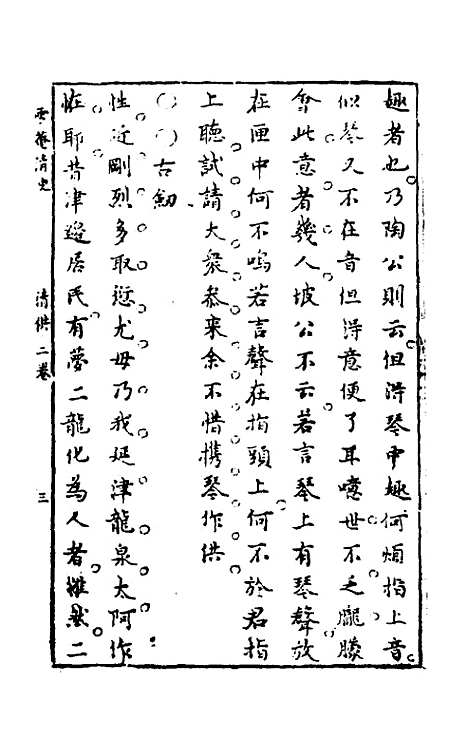 趣者也乃陶公則云但得琴中趣何煩指上音
似琴又不在音但得意便了耳噫世不乏朧朦
會此意者幾人坡公不云若言琴上有琴聲放
在匣中何不鳴若言聲在指頭上何不於君指
上聽試請大衆叅來余不惜携琴作供
〇〇古劒
性近剛烈多取愆尤毋乃我延津龍泉太阿作
恠耶昔津邉居民有夢二龍化為人者雄然二
清史
清供二卷
三